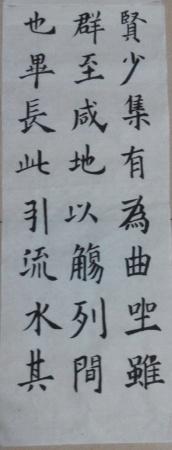 賢少集有為曲坐雖
群至咸地以觴列間
也畢長此引流水其